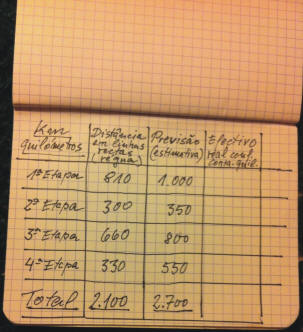 Km Distância Previsão Efectivo
quilómetros em linhas (estimativa) real conf.
rectas conta-quil.
(régua)
1ª Etapa 810 1.000
2ª Etapa 300 350
3ª Etapa 660 800
4ª Etapa 330 550
Total 2.100 2.700